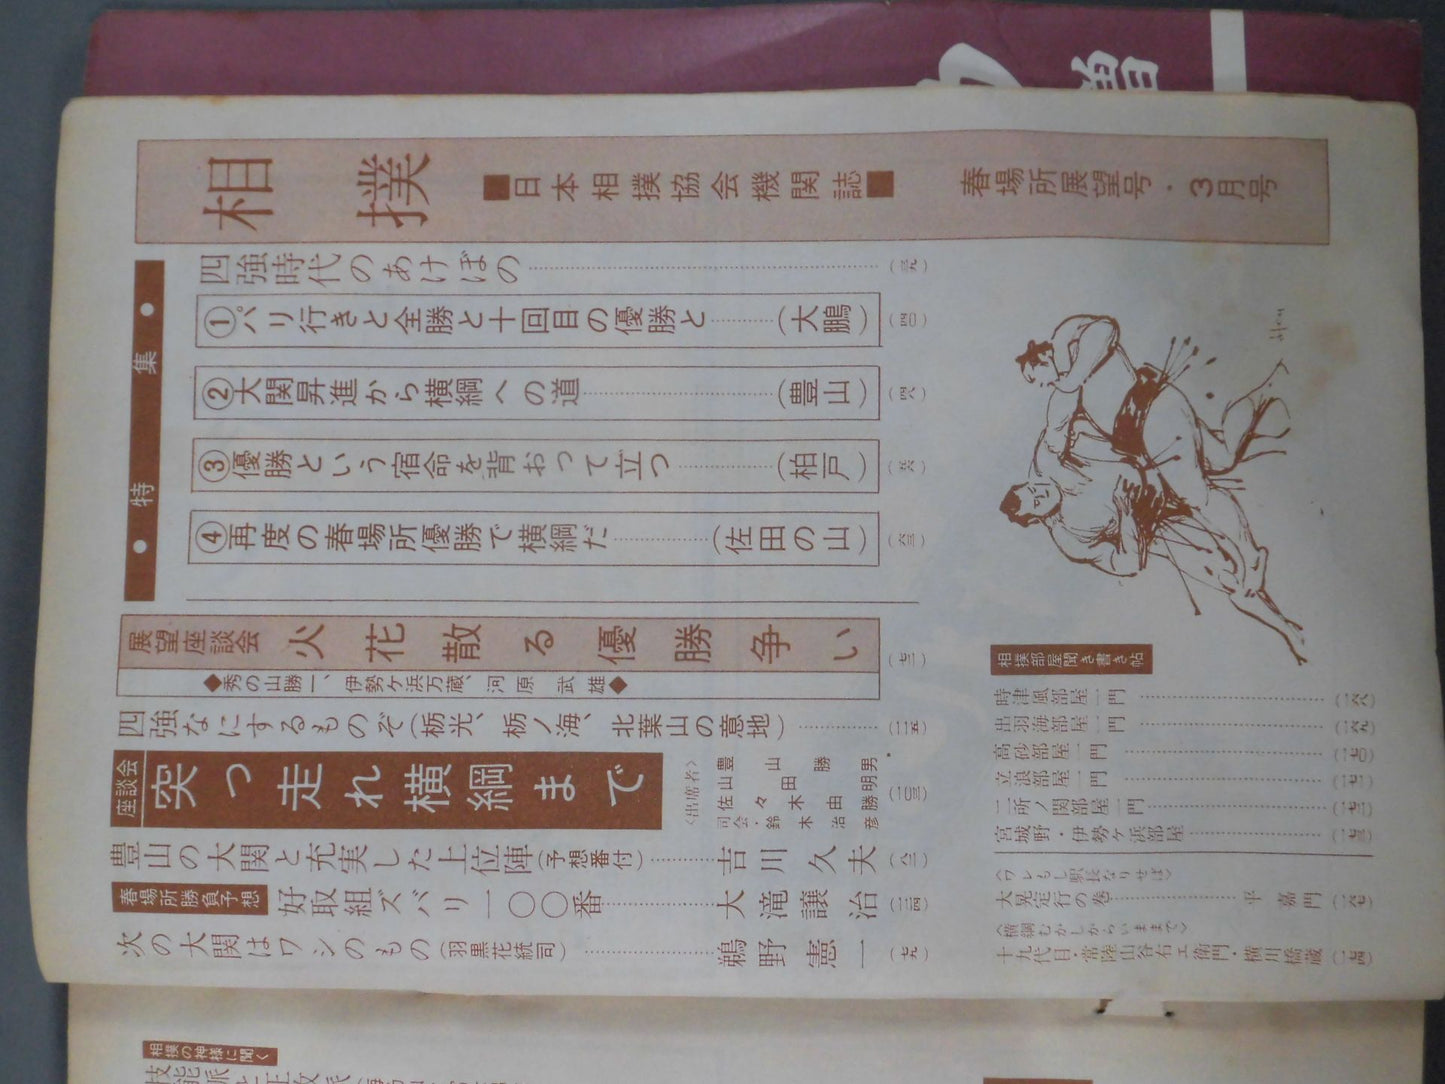 相撲
■日本相撲協会機関誌■
春場所展望号・3月号
●特集●
四強時代のあけぼの………(三九)
①パリ行きと全勝と十回目の優勝と………(大鵬)(四〇)
②大関昇進から横綱への道………(豊山)(四八)
③優勝という宿命を背おって立つ………(柏戸)(五六)
④再度の春場所優勝で横綱だ………(佐田の山)(六三)
展望座談会
火花散る優勝争い(七二)
◆秀の山勝一、伊勢ケ浜万蔵、河原武雄◆
四強なにするものぞ(栃光、栃ノ海、北葉山の意地)………(三五)
座談会
突っ走れ横綱まで
〈出席者〉
豊山勝男
山田勝明
佐々木由勝
司会・鈴木治彦
(一〇三)
豊山の大関と充実した上位陣(予想番付)………吉川久夫(八二)
春場所勝負予想
好取組ズバリ一〇〇番………大滝譲治(三四)
次の大関はワシのもの(羽黒花統司)………鵜野憲一(七九)
相撲部屋聞き書き帖
時津風部屋一門………(一六八)
出羽海部屋一門………(一六九)
高砂部屋一門………(一七〇)
立浪部屋一門………(一七一)
二所ノ関部屋一門………(一七二)
宮城野・伊勢ケ浜部屋………(一七三)
〈ワレもし駅長なりせば〉
大晃定行の巻………平嘉門(一六七)
〈横綱むかしからいままで〉
十九代目・常陸山谷右エ衛門・横川橋蔵(一七四)
相撲の神様に聞く